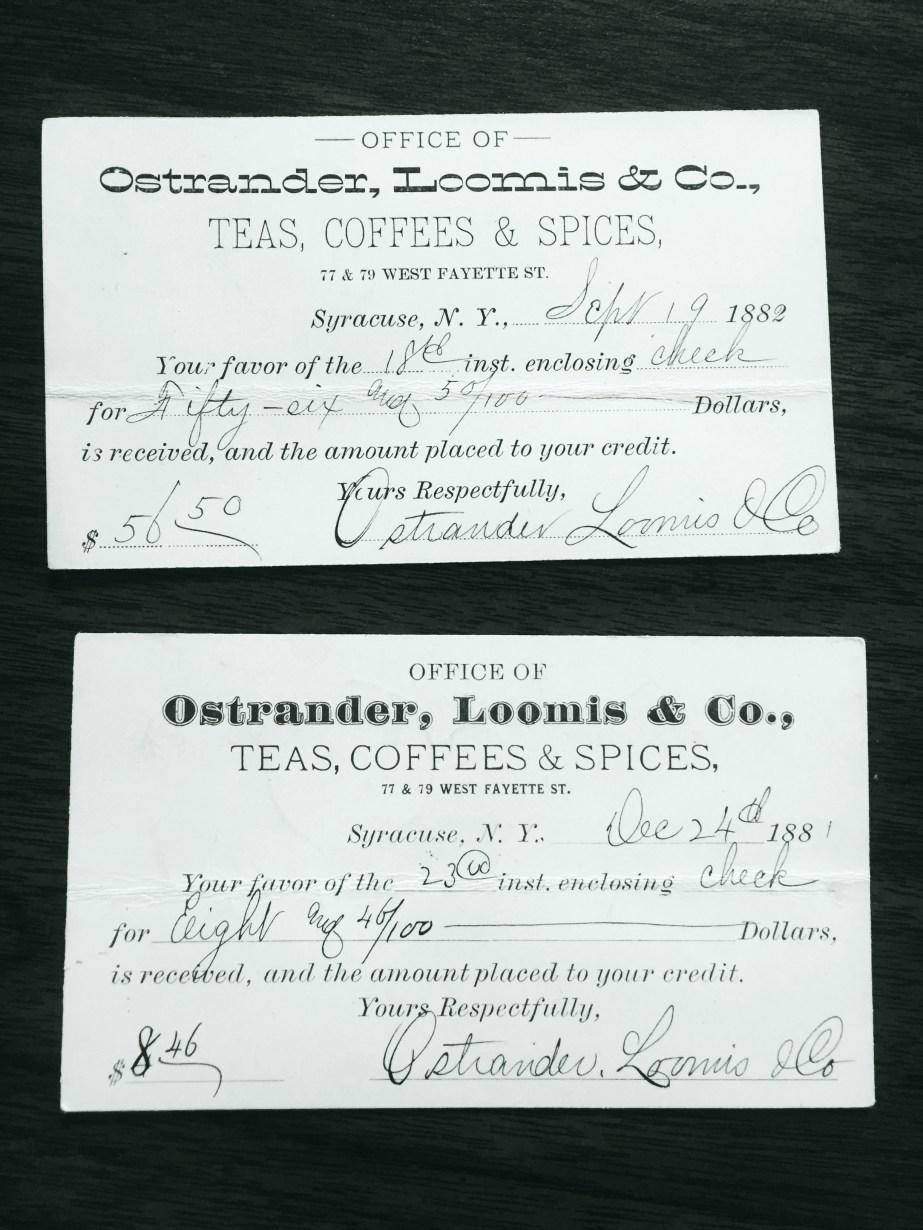 OFFICE OF
Ostrander, Loomis & Co.,
TEAS, COFFEES & SPICES,
77 & 79 WEST FAYETTE ST.
Syracuse, N. Y., Sept 19 1882
Your favor of the 18th inst. enclosing check
for Fifty-six and 50/100 Dollars,
is received, and the amount placed to your credit.
Yours Respectfully,
$ 56 50 Ostrander Loomis & Co
OFFICE OF
Ostrander, Loomis & Co.,
TEAS, COFFEES & SPICES,
77 & 79 WEST FAYETTE ST.
Syracuse, N. Y. Dec 24th 1881
Your favor of the 23rd inst. enclosing check
for Eight and 46/100 Dollars,
is received, and the amount placed to your credit.
Yours Respectfully,
$ 8 46 Ostrander, Loomis & Co